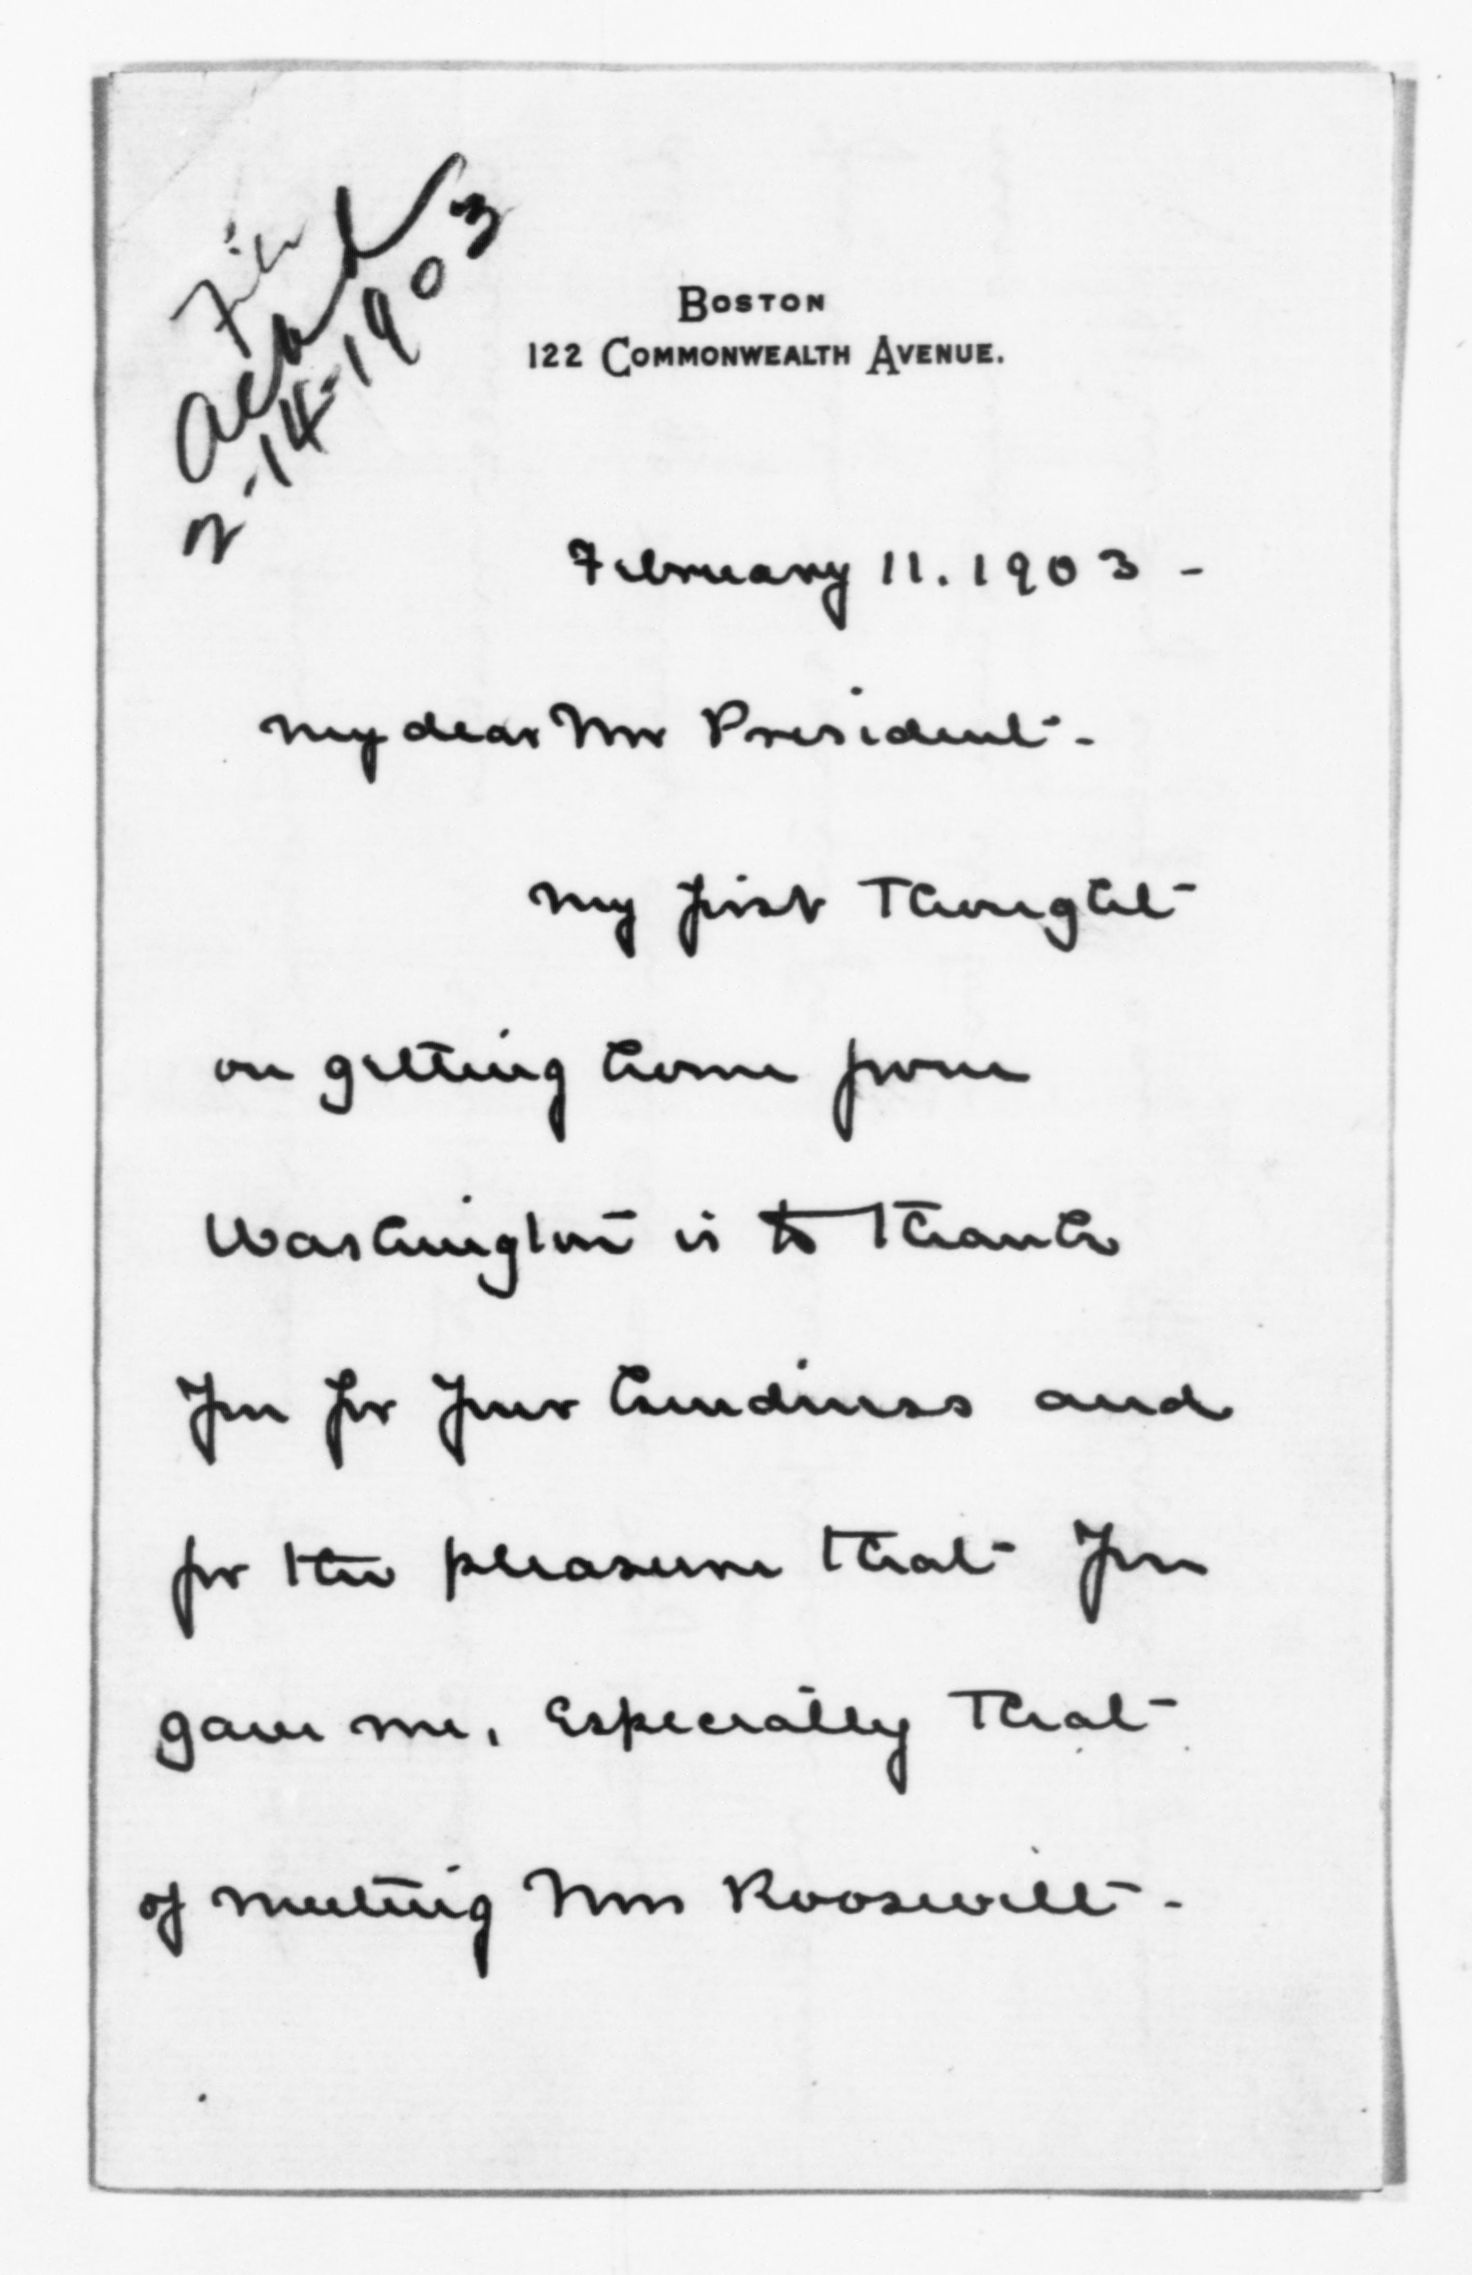 File
Ackd
2-14-1903
BOSTON
122 COMMONWEALTH AVENUE.
February 11. 1903 -
My dear Mr President -
My first thought
on getting home from
Washington is to thank
you for your kindness and
for the pleasure that you
gave me, especially that
of meeting Mrs Roosevelt -